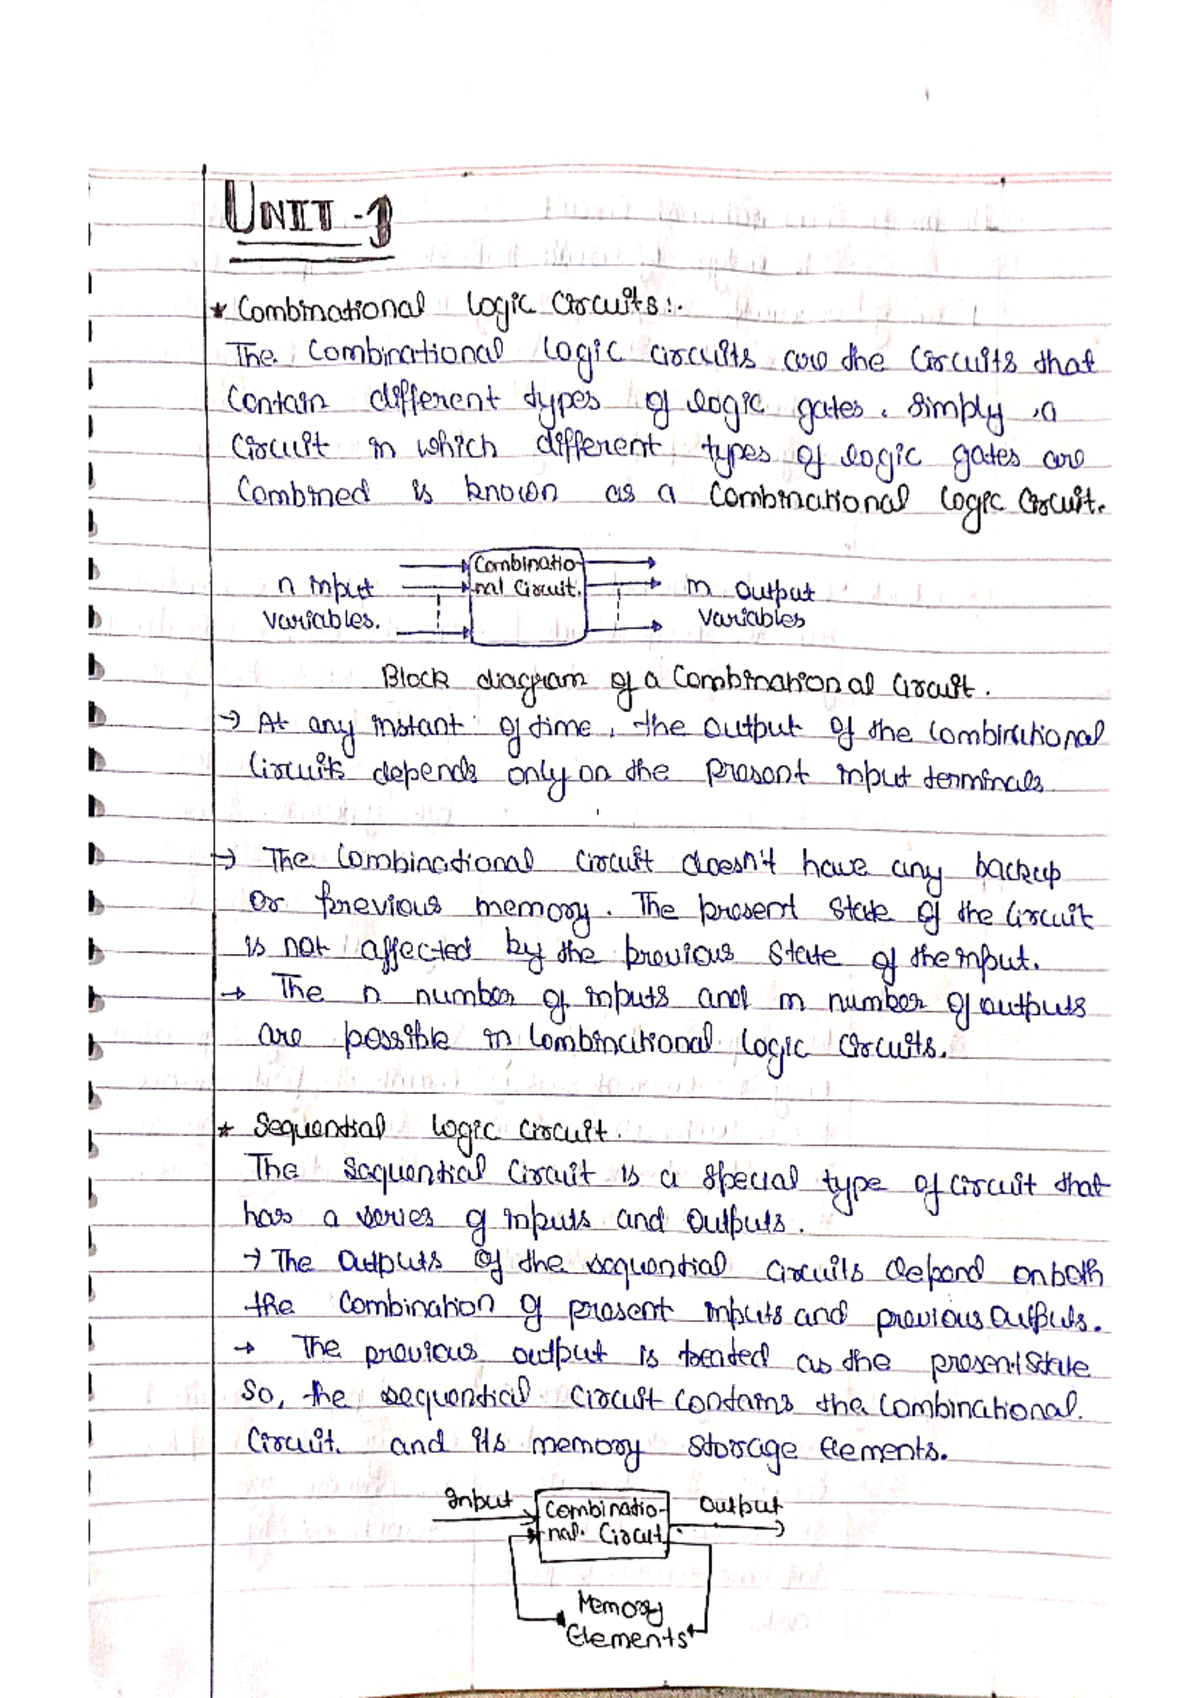 UNIT - 1
* Combinational Logic Circuits:.
The Combinational Logic circuits are the Circuits that
Contain different types of logic gates. Simply, a
Circuit in which different types of logic gates are
Combined is known as a Combinational Logic Circuit.
n input
variables.
Combinatio-
nal Circuit.
m output
variables
Block diagram of a Combinational Circuit.
→ At any instant of time, the output of the Combinational
Circuits depends only on the present input terminals
→ The Combinational Circuit doesn't have any backup
or previous memory. The present state of the Circuit
is not affected by the previous state of the input.
→ The n number of inputs and m number of outputs
are possible in Combinational Logic Circuits.
* Sequential Logic circuit.
The Sequential Circuit is a special type of circuit that
has a series of inputs and outputs.
→ The outputs of the sequential circuits depend on both
the Combination of present inputs and previous outputs.
→ The previous output is treated as the present state
So, the sequential circuit contains the Combinational.
Circuit. and its memory storage elements.
Input
Combinatio-
nal. Circut
Output
Memory
Elements